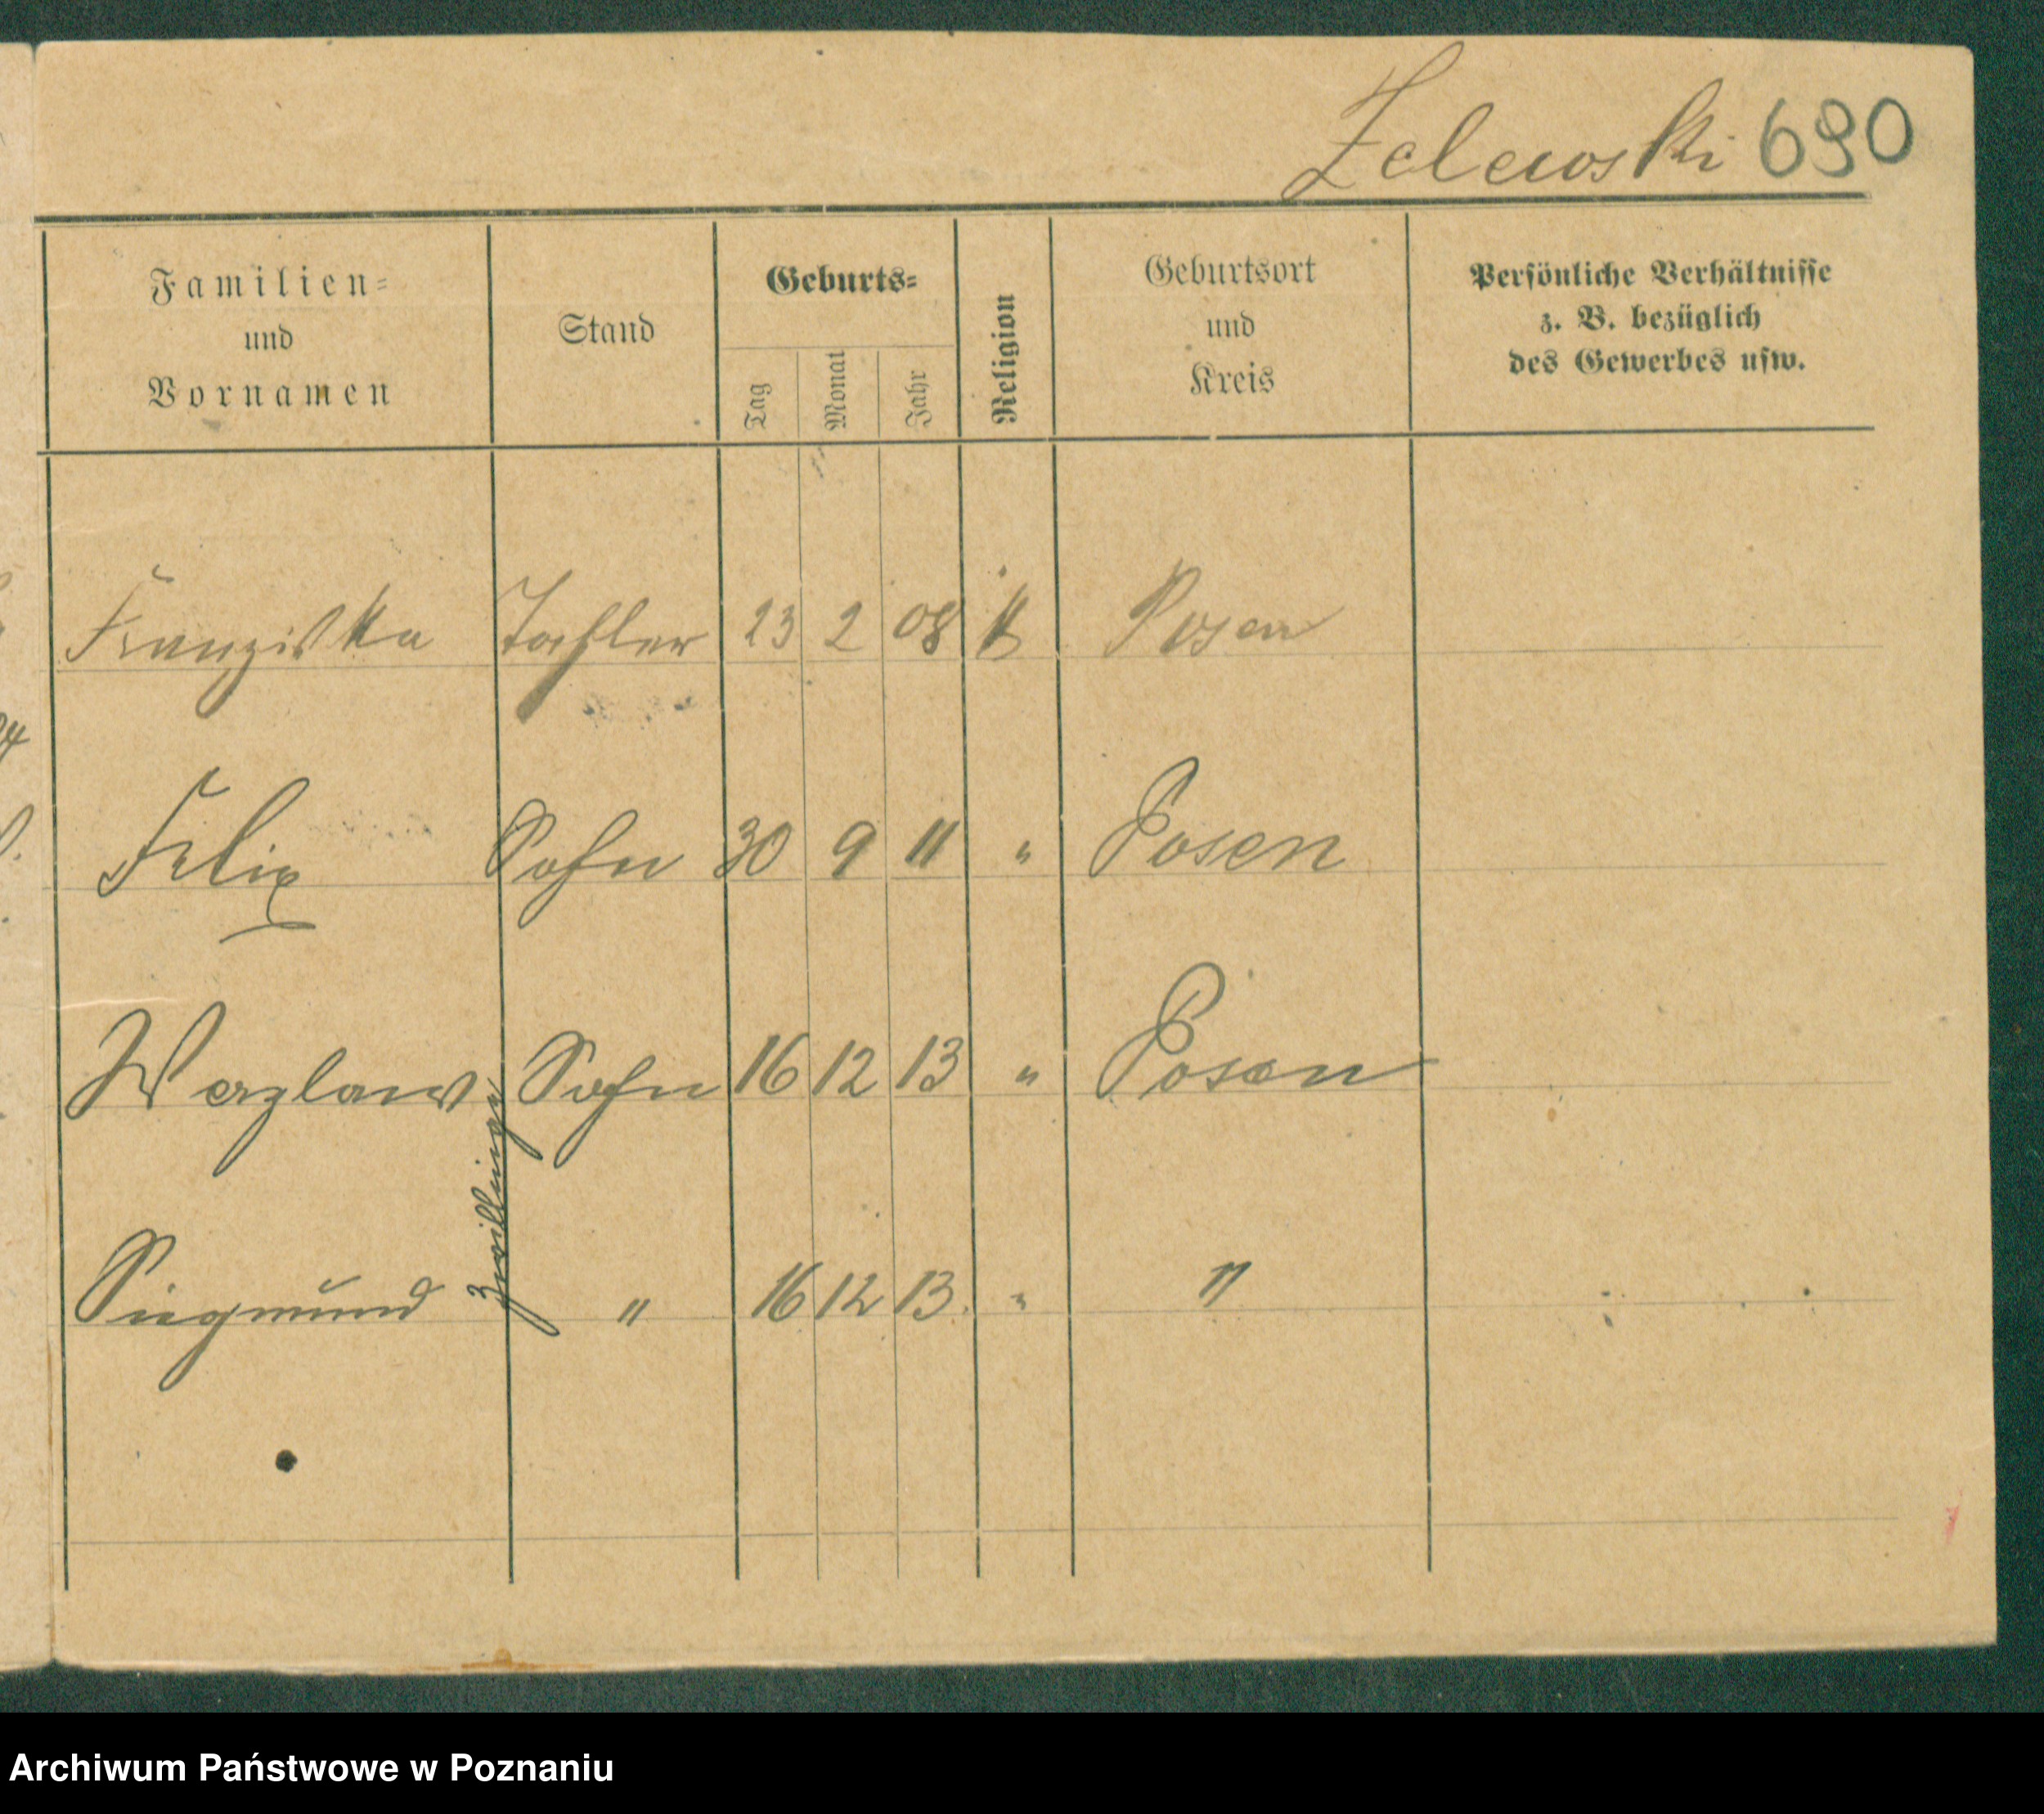 Zelewski 690
Familien= und Vornamen
Stand
Geburts=
Tag
Monat
Jahr
Religion
Geburtsort und Kreis
Persönliche Verhältnisse z. B. bezüglich des Gewerbes usw.
Franziska Tochter 23 2 08 K Posen
Felix Sohn 30 9 11 " Posen
Werzlaw Sohn 16 12 13 " Posen
Zwillinge
Siegmund " 16 12 13. " "
Archiwum Państwowe w Poznaniu